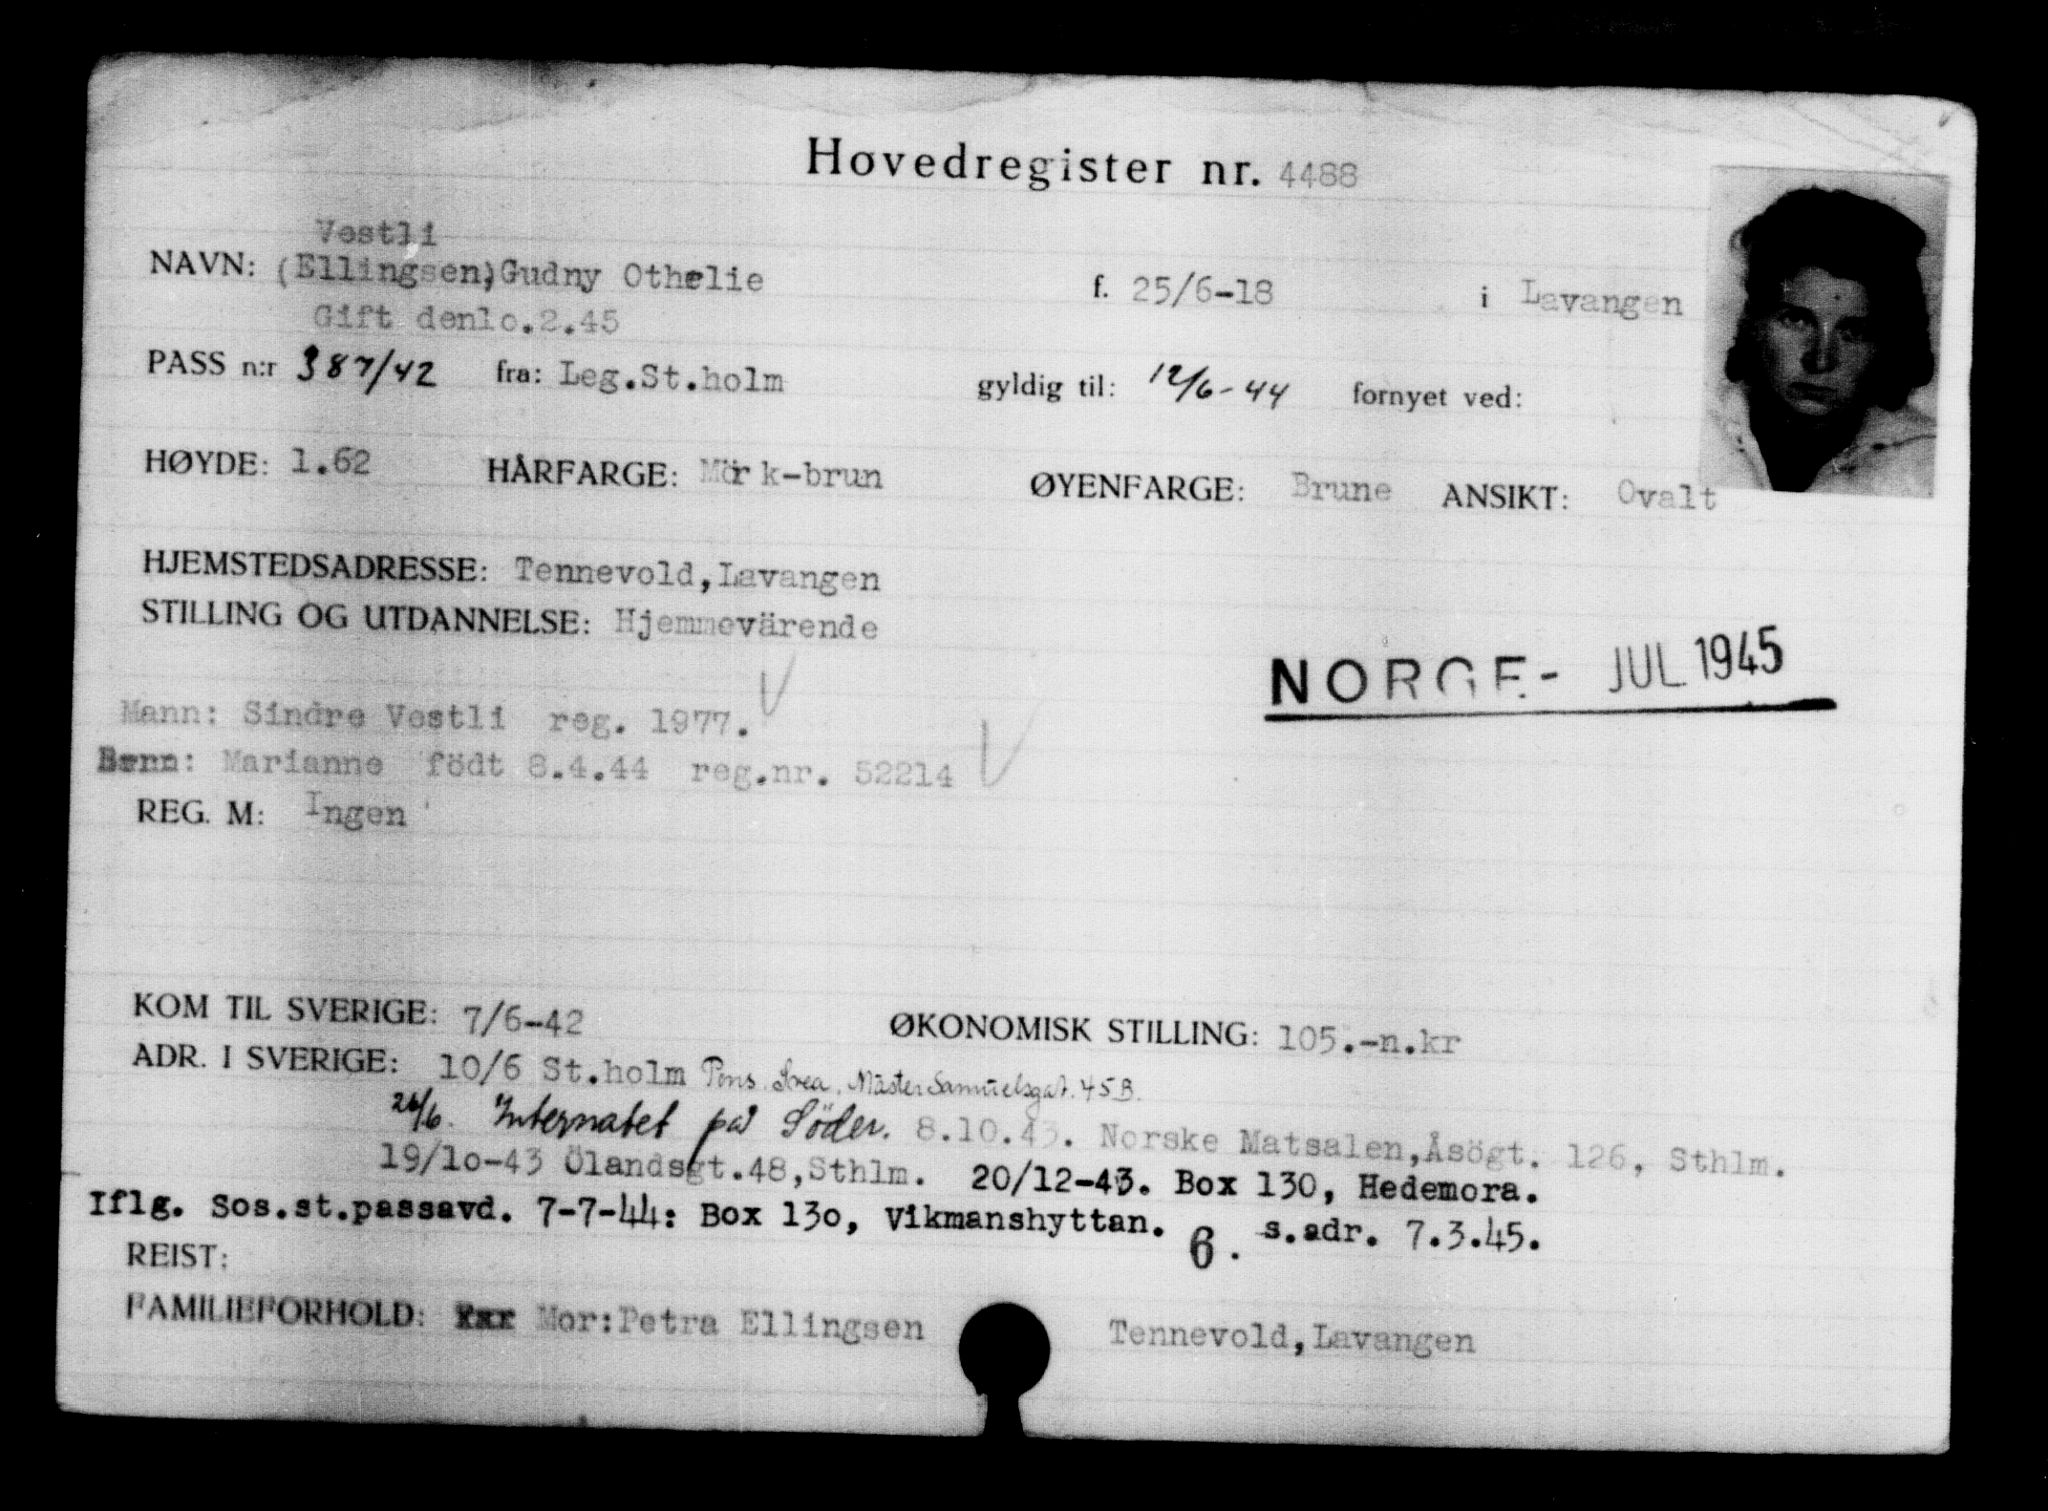 Hovedregister nr. 4488
Vestli
NAVN: (Ellingsen,)Gudny Othelie f. 25/6-18 i Lavangen
Gift denlo.2.45
PASS n:r 387/42 fra: Leg.St.holm gyldig til: 12/6-44 fornyet ved:
HØYDE: 1.62 HÅRFARGE: Mörk-brun ØYENFARGE: Brune ANSIKT: Ovalt
HJEMSTEDSADRESSE: Tennevold,Lavangen
STILLING OG UTDANNELSE: Hjemmevärende
NORGE- JUL 1945
Mann: Sindre Vestli reg. 1977.
Barn: Marianne födt 8.4.44 reg.nr. 52214
REG. M: Ingen
KOM TIL SVERIGE: 7/6-42 ØKONOMISK STILLING: 105.-n.kr
ADR. I SVERIGE: 10/6 St.holm Pens. Mäster Samuelsgat. 45B.
26/6. Internatet på Söder. 8.10.43. Norske Matsalen,Åsögt. 126, Sthlm.
19/lo-43 Ölandsgt.48,Sthlm. 20/12-43. Box 130, Hedemora.
Iflg. Sos.st.passavd. 7-7-44: Box 13o, Vikmanshyttan. 6. s.adr. 7.3.45.
REIST:
FAMILIEFORHOLD: Mor:Petra Ellingsen Tennevold,Lavangen